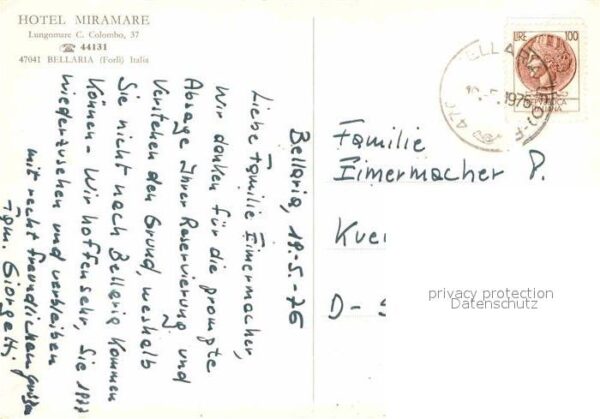 HOTEL MIRAMARE
Lungomare C. Colombo, 37
☎ 44131
47041 BELLARIA (Forlì) Italia
Bellaria, 19-5-76
Liebe Familie Eimermacher,
Wir danken für die prompte
Absage Ihrer Reservierung und
Verstehen den Grund, weshalb
Sie nicht nach Bellaria kommen
können - Wir hoffen sehr, Sie 1977
wiederzusehen und verbleiben
mit recht freundlichen
Fam. Giorgetti
LIRE 100
1976
Familie
Eimermacher P.
D-
privacy protection
Datenschutz